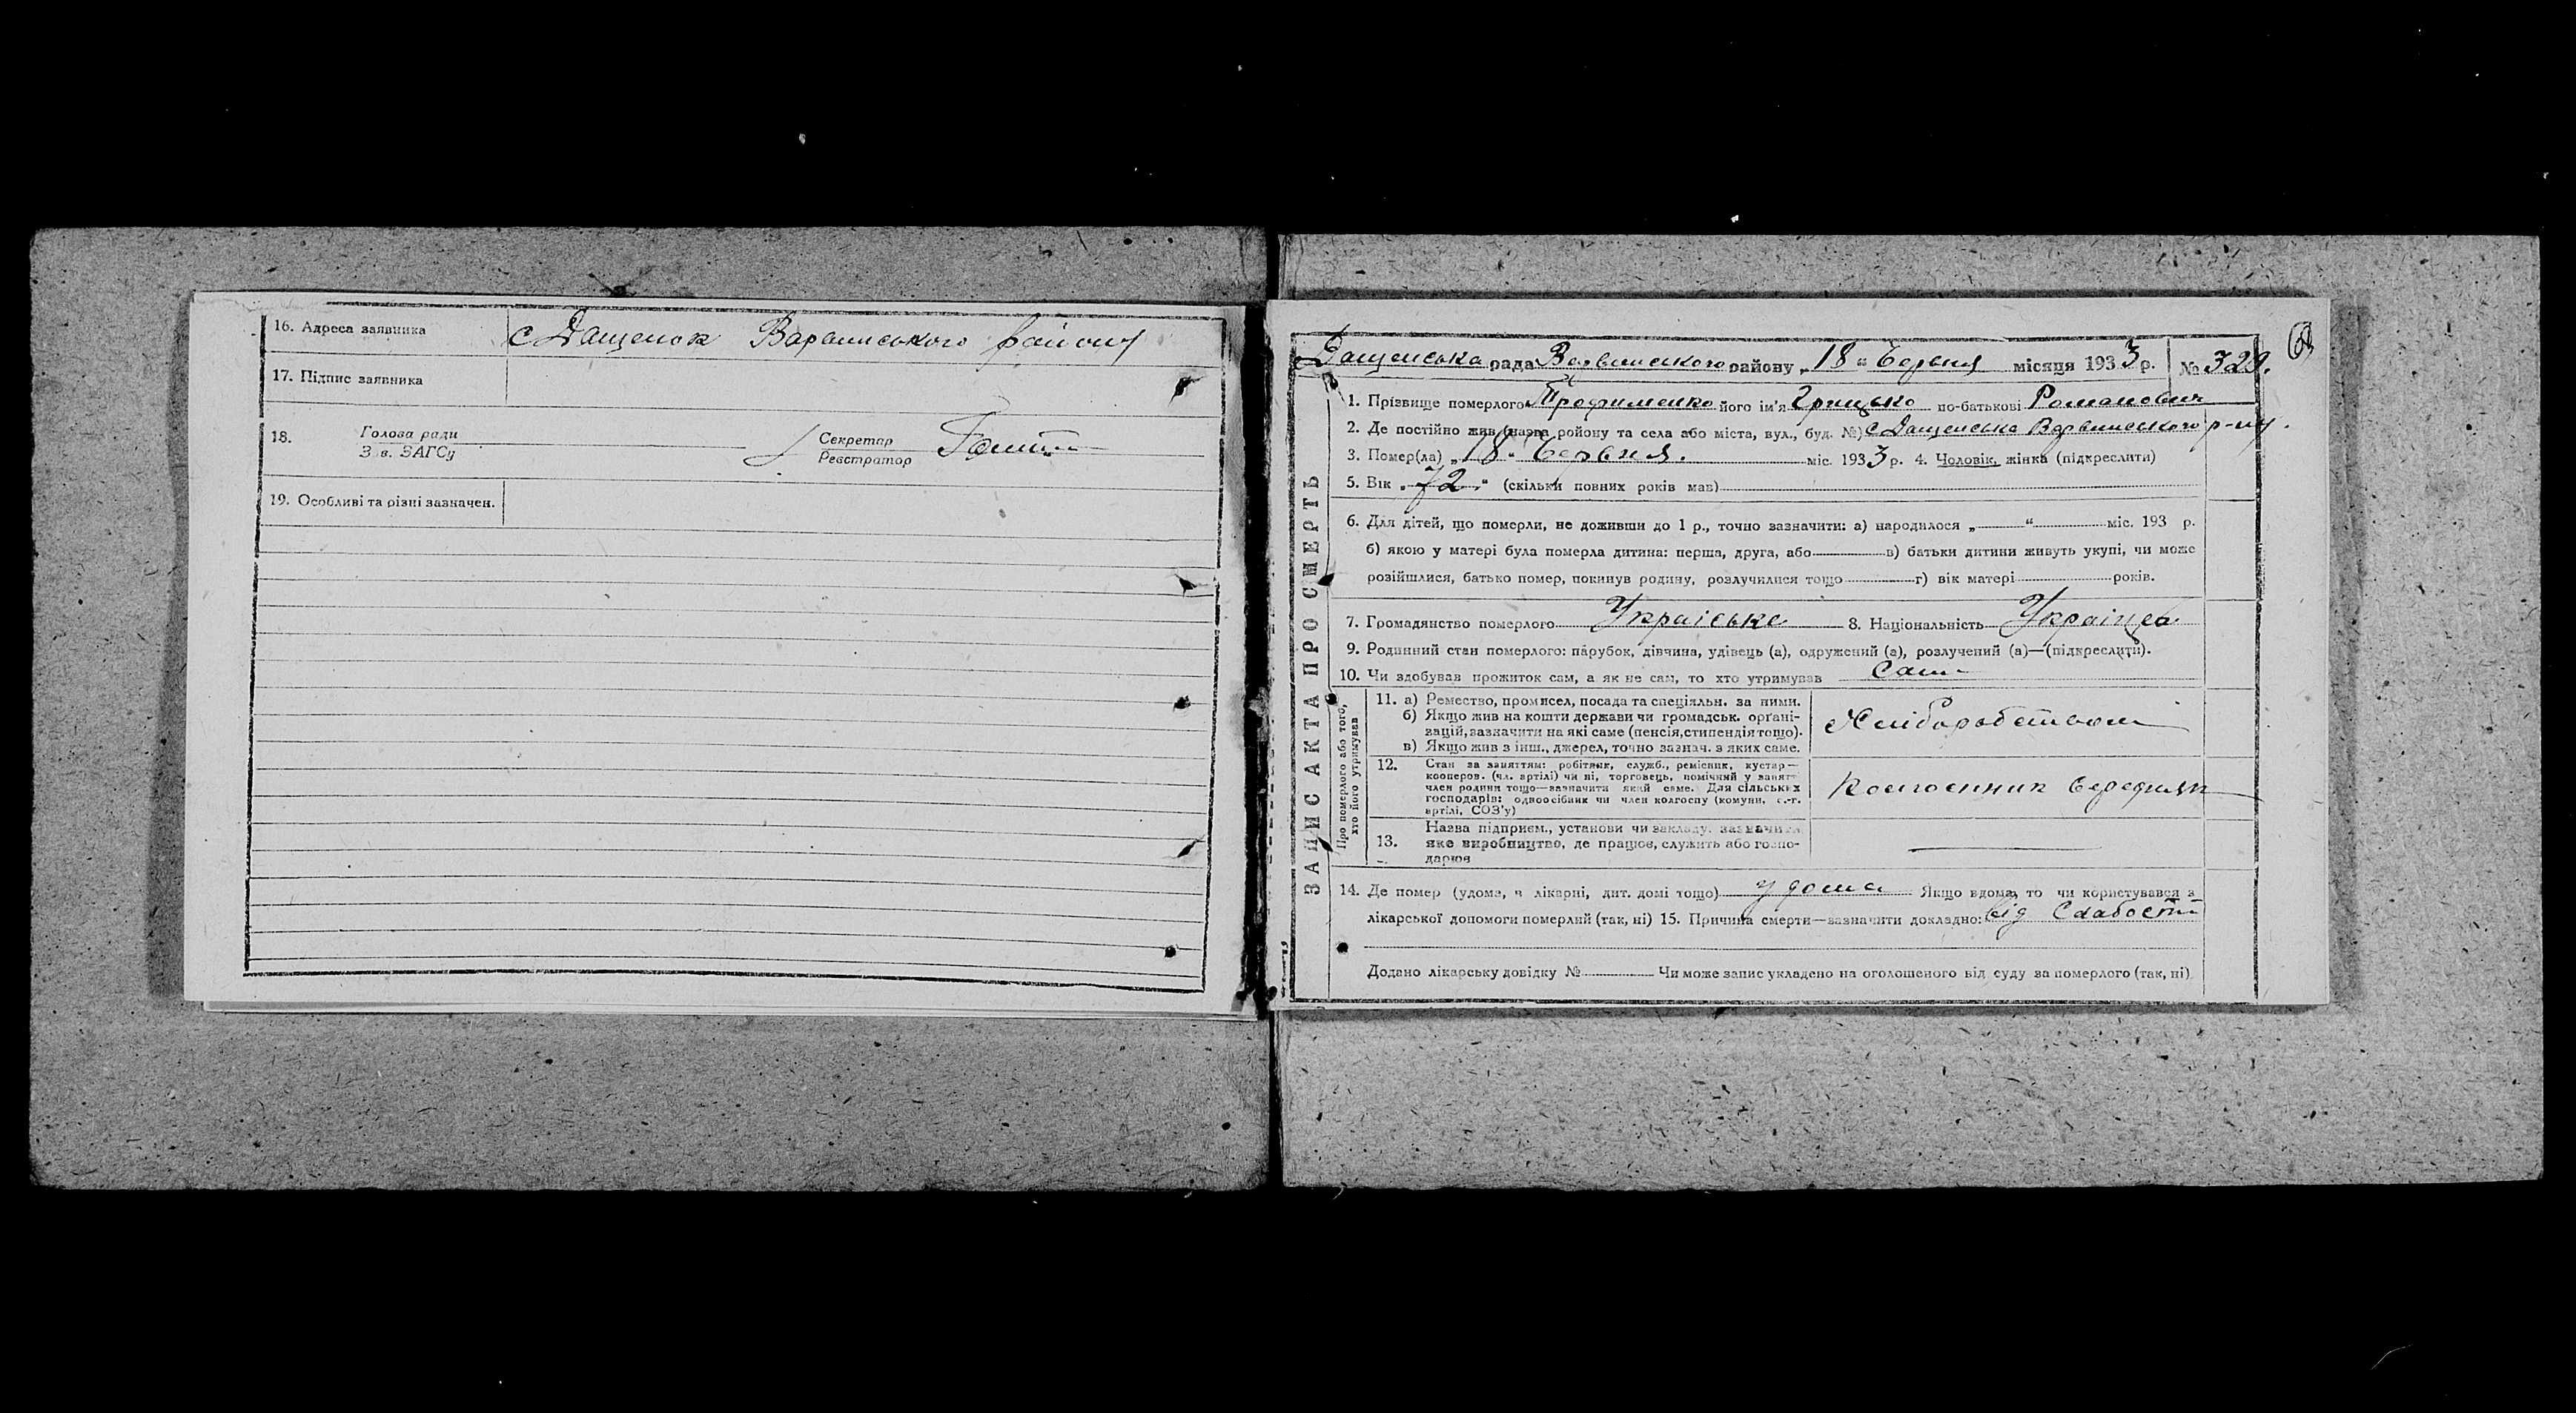 16. Адреса заявника с Дащенок Варвинського району
17. Підпис заявника
18. Голова ради
Зав. ЗАГСу
Секретар
Реєстратор
19. Особливі та різні зазначен.
ЗАПИС АКТА ПРО СМЕРТЬ
Дащенська рада Варвинського району „18“ Червня місяця 1933 р. № 329.
1. Прізвище померлого Трофименко його ім'я Грицько по-батькові Романович
2. Де постійно жив (назва району та села або міста, вул., буд. №) с Дащенська Варвинського р-ну.
3. Помер(ла) „18“ Червня. міс. 1933 р. 4. Чоловік, жінка (підкреслити)
5. Вік „72“ (скільки повних років мав)
6. Для дітей, що померли, не доживши до 1 р., точно зазначити: а) народилося „ “ міс. 193 р.
б) якою у матері була померла дитина: перша, друга, або в) батьки дитини живуть укупі, чи може
розійшлися, батько помер, покинув родину, розлучилися тощо г) вік матері років.
7. Громадянство померлого Украіське 8. Національність Украінец
9. Родинний стан померлого: парубок, дівчина, удівець (а), одружений (а), розлучений (а)—(підкреслити).
10. Чи здобував прожиток сам, а як не сам, то хто утримував Сам
Про померлого або того,
хто його утримував
11. а) Ремество, промисел, посада та спеціяльн. за ними.
б) Якщо жив на кошти держави чи громадськ. органі-
зацій, зазначити на які саме (пенсія, стипендія тощо).
в) Якщо жив з інш., джерел, точно зазнач. з яких саме.
Хліборобством
12. Стан за заняттям: робітник, служб., ремісник, кустар—
кооперов. (чл. артілі) чи ні, торговець, помічний у занят—
член родини тощо—зазначити який саме. Для сільських
господарів: одноосібник чи член колгоспу (комуни, с.-г.
артілі, СОЗ'у)
Колгоспник Середняк
13. Назва підприєм., установи чи закладу, зазначити
яке виробництво, де працює, служить або госпо-
дарює
14. Де помер (удома, в лікарні, дит. домі тощо) у дома Якщо вдома, то чи користувався з
лікарської допомоги померлий (так, ні) 15. Причина смерти—зазначити докладно: від Слабости
Додано лікарську довідку № Чи може запис укладено на оголошеного від суду за померлого (так, ні)